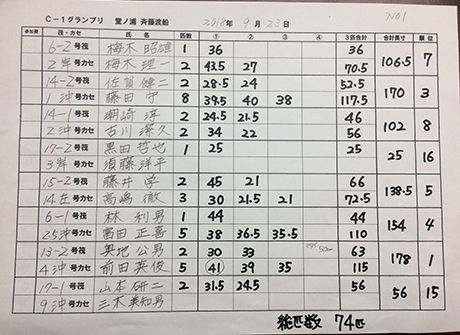 C-1グランプリ 堂ノ浦 斉藤渡船 2018年 9月 23日 NO1
参加費 号筏・号カセ 氏 名 匹数 ① ② ③ ④ ⑤ 3匹合計 合計長寸 順位
6-2 号筏 梅木 昭雄 1 36 36
2岸 号カセ 梅木 理一 2 43.5 27 70.5 106.5 7
14-2 号筏 佐賀 健二 2 28.5 24 52.5
1沖 号カセ 藤田 守 8 39.5 40 38 117.5 170 3
14-1 号筏 潮崎 淳 2 24.5 21.5 46
2沖 号カセ 古川 潔久 2 34 22 56 102 8
17-2 号筏 黒田 哲也 1 25 25
3岸 号カセ 須藤 洋平 25 16
15-2 号筏 藤井 学 2 45 21 66
14左 号カセ 高嶋 徹 3 30 21.5 21 72.5 138.5 5
6-1 号筏 林 利男 1 44 44
25沖 号カセ 富田 正喜 5 38 36.5 35.5 110 154 4
13-2 号筏 奥地 公男 2 30 33 50cm 63
4沖 号カセ 前田 英俊 5 41 39 35 115 178 1
17-1 号筏 山本 研二 2 31.5 24.5 56
9沖 号カセ 三木 美知男 56 15
総匹数 74匹